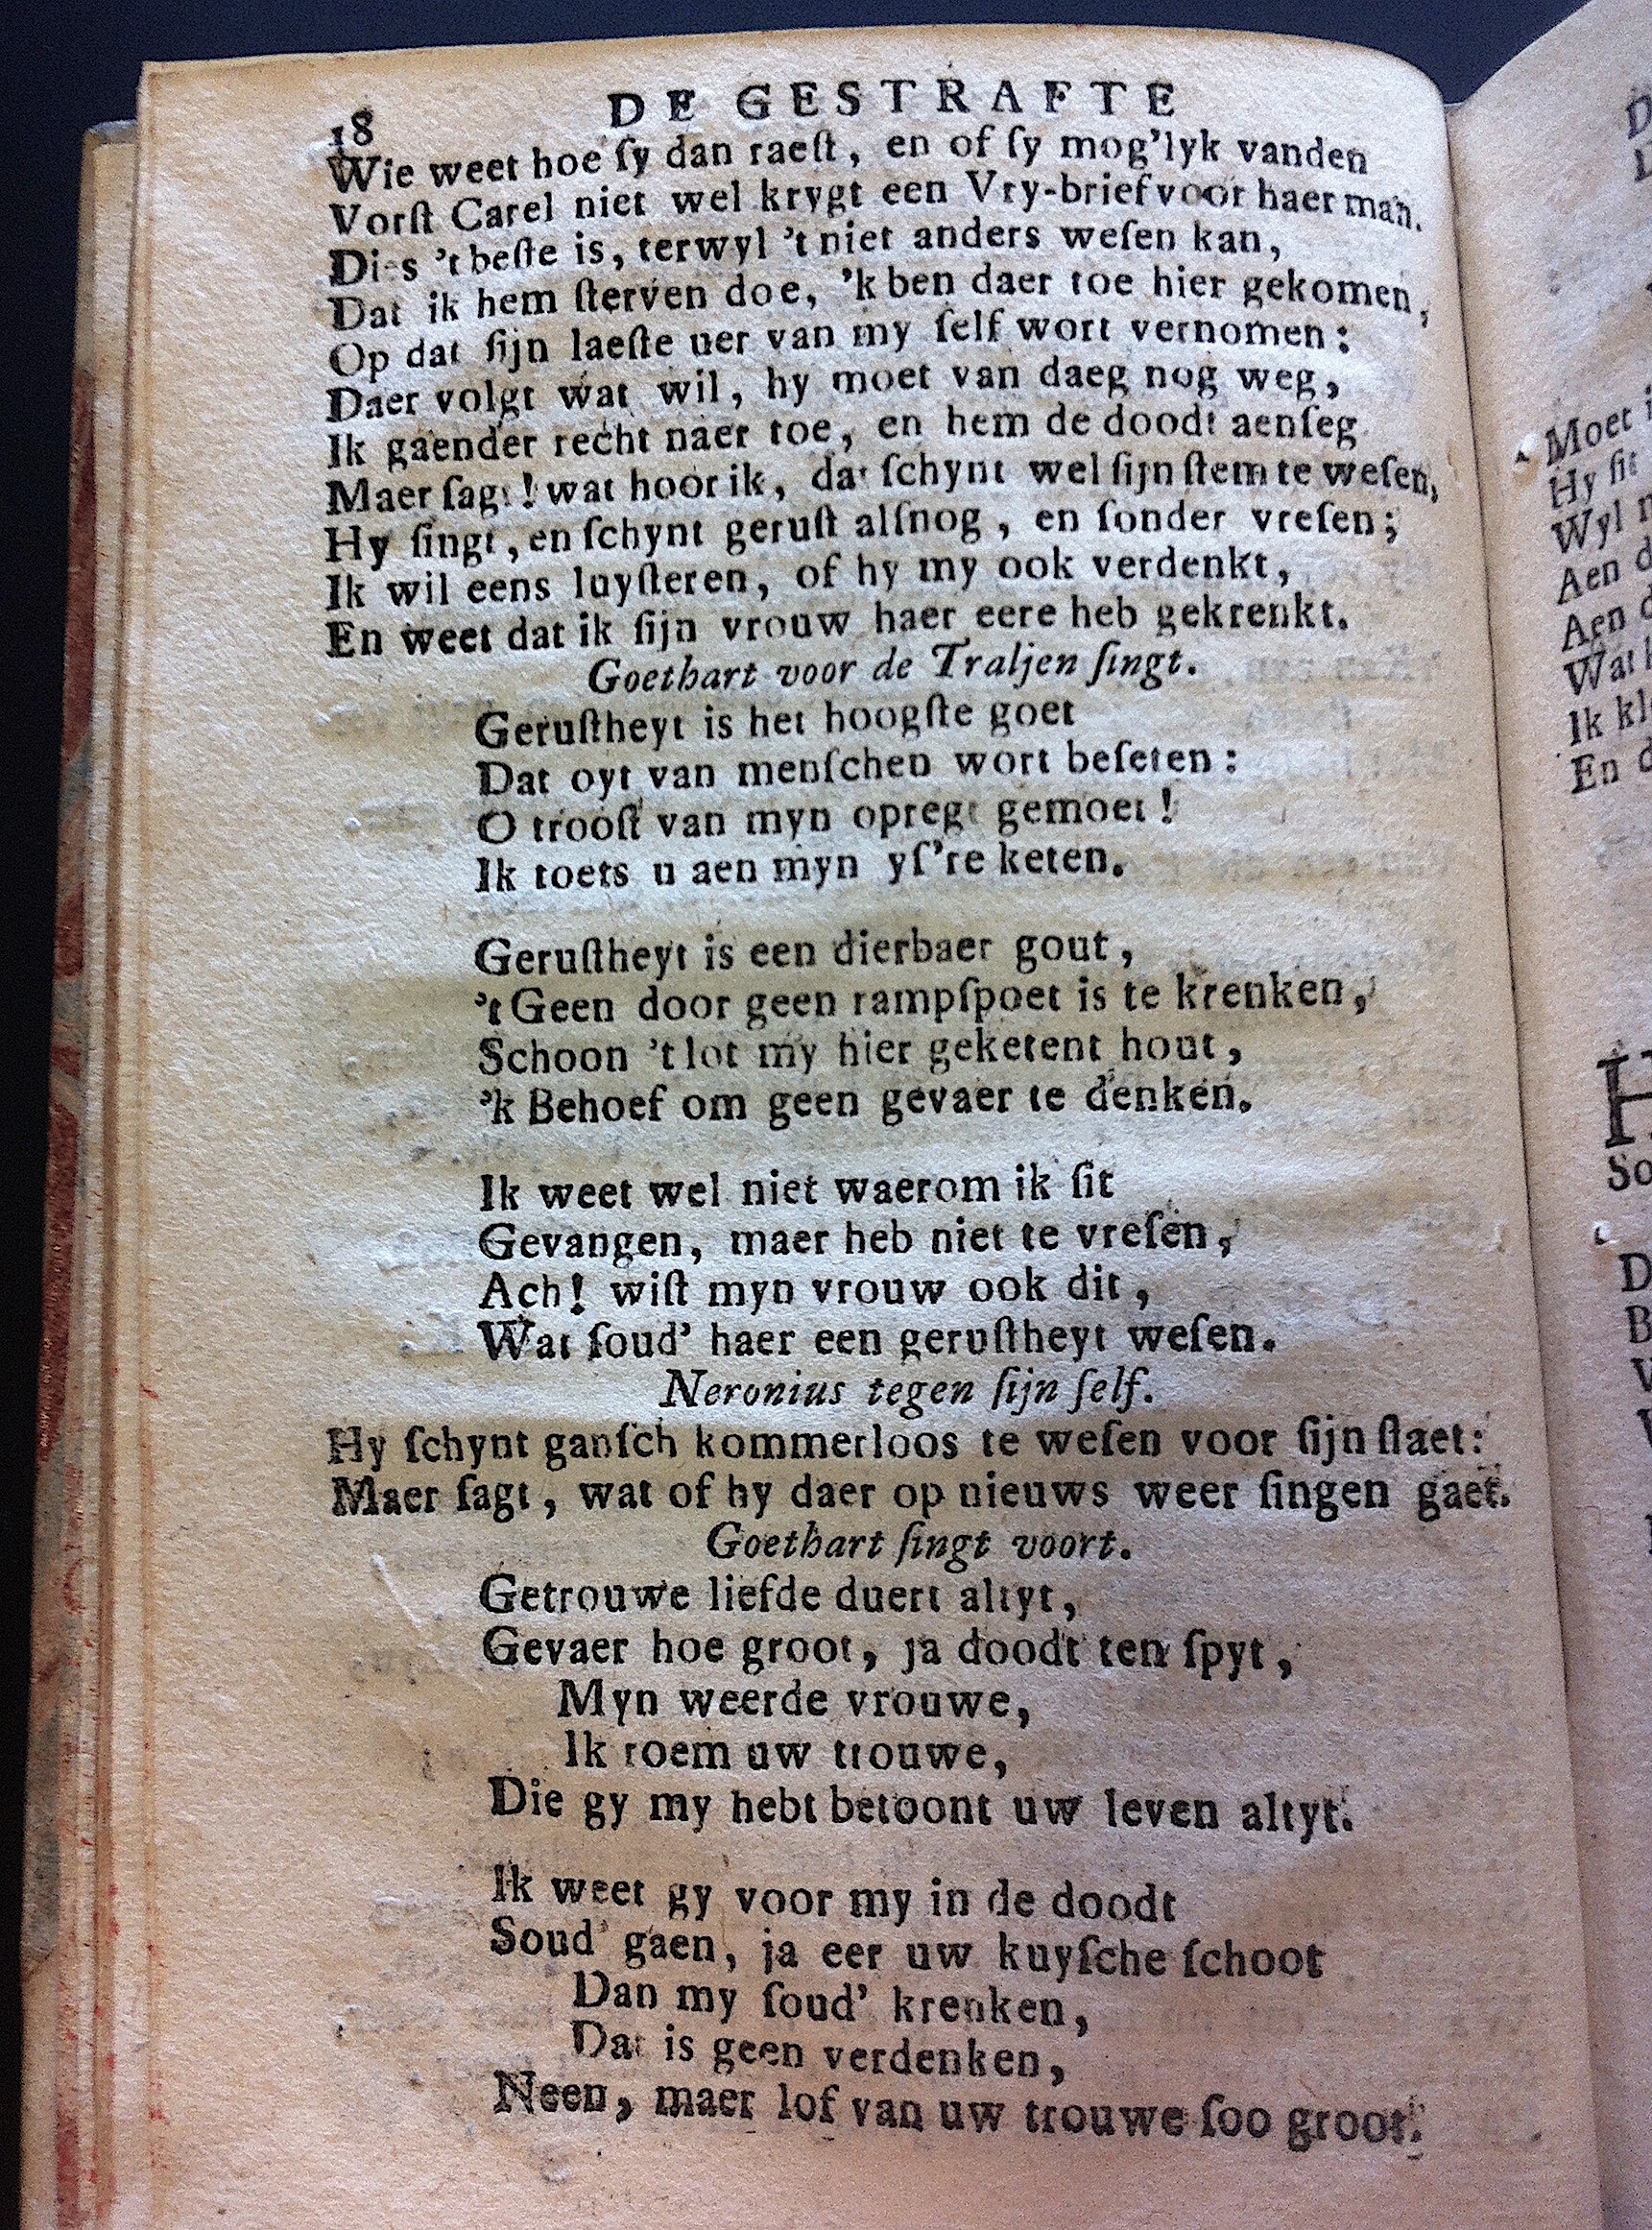 18 DE GESTRAFTE
Wie weet hoe ſy dan raeſt, en of ſy mog'lyk vanden
Vorſt Carel niet wel krygt een Vry-brief voor haer man.
Dies 't beſte is, terwyl 't niet anders weſen kan,
Dat ik hem ſterven doe, 'k ben daer toe hier gekomen,
Op dat ſijn laeſte uer van my ſelf wort vernomen:
Daer volgt wat wil, hy moet van daeg nog weg,
Ik gaender recht naer toe, en hem de doodt aenſeg.
Maer ſagt! wat hoor ik, dat ſchynt wel ſijn ſtem te weſen,
Hy ſingt, en ſchynt geruſt alſnog, en ſonder vreſen;
Ik wil eens luyſteren, of hy my ook verdenkt,
En weet dat ik ſijn vrouw haer eere heb gekrenkt.
Goethart voor de Traljen ſingt.
Geruſtheyt is het hoogſte goet
Dat oyt van menſchen wort beſeten:
O trooſt van myn opregt gemoet!
Ik toets u aen myn yſ're keten.
Geruſtheyt is een dierbaer gout,
't Geen door geen rampſpoet is te krenken,
Schoon 't lot my hier geketent hout,
'k Behoef om geen gevaer te denken.
Ik weet wel niet waerom ik ſit
Gevangen, maer heb niet te vreſen,
Ach! wiſt myn vrouw ook dit,
Wat ſoud' haer een geruſtheyt weſen.
Neronius tegen ſijn ſelf.
Hy ſchynt ganſch kommerloos te weſen voor ſijn ſtaet:
Maer ſagt, wat of hy daer op nieuws weer ſingen gaet.
Goethart ſingt voort.
Getrouwe liefde duert altyt,
Gevaer hoe groot, ja doodt ten ſpyt,
Myn weerde vrouwe,
Ik roem uw trouwe,
Die gy my hebt betoont uw leven altyt.
Ik weet gy voor my in de doodt
Soud' gaen, ja eer uw kuyſche ſchoot
Dan my ſoud' krenken,
Dat is geen verdenken,
Neen, maer lof van uw trouwe ſoo groot.
Moet
Hy ſit
Wyl
Aen
Aen
Wat
Ik
En